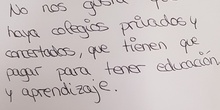 No nos gusta que
haya colegios privados y
concertados, que tienen que
pagar para tener educación
y aprendizaje.